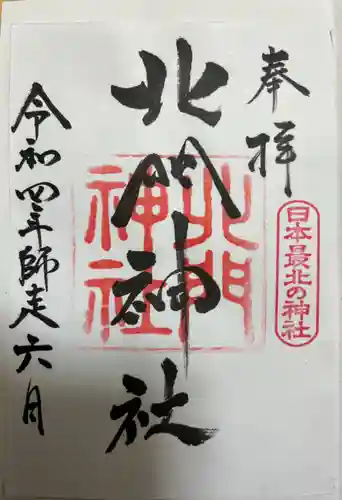 奉拝
日本最北の神社
北門神社
北門
神社
令和四年師走六月